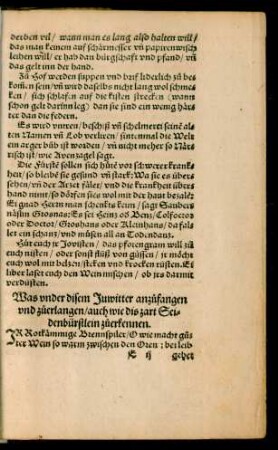 derben vil / wann man es lang also halten will /
das man keinem auf schärmesser vñ papirenwisch
leihen will / er hab dan bürgschaft vnd pfand / vñ
das gelt inn der hand.
Zů Hof werden suppen vnd huf liderlich zů be-
kommen sein / vñ wird daselbs nicht lang wol schmec-
ken / sich schlafen auf die kisten strecken (wann
schon gelt darinn leg) dan sie sind ein wenig härs-
ter dan die federn.
Es wird vntreu / beschiß vñ schelmerei seinē al-
ten Namen vñ Lob verlirn / sintenmal die Welt
ein ärger bůb ist worden / vñ nicht meher so När-
risch ist / wie Avenzagel sagt.
Die Fürstē sollen sich hůnē vor schwerer krank-
heit / so bleibē sie gesund vñ starck: Wa sie es übers
sehen / vñ der Arzet fälet / vnd die krankheit übers
hand nim̄t / so dörfen sies wol mit der haut bezalē:
Ei gnad Herrn man schenkts keim / sagt Sanders
näsin Grosnas: Es sei Heinz oᵈ Benz / Colfoctor
oder Doctor / Groshans oder Kleinhans / da fal-
let ein schanz / vnd müsen all an Todendanz.
Hüt euch jr Jovisten / das pfotengram will zů
euch nisten / oder sonst flüß von güssen / jr möcht
euch wol mit belzen / stecken vnd krocken rüsten. Et
liber laset euch den Wein wischen / ob jrs darmit
verdüsten.
Was vnder disem Juwitter anzůfangen
vnd zůerlangen / auch wie dis zart Sei-
denbürstlein zůerkennen.
IR Rotkämmige Brennspiler / O wie macht gůs
ter Wein so warm zwischen den Oren: bei leib
E ij gehet